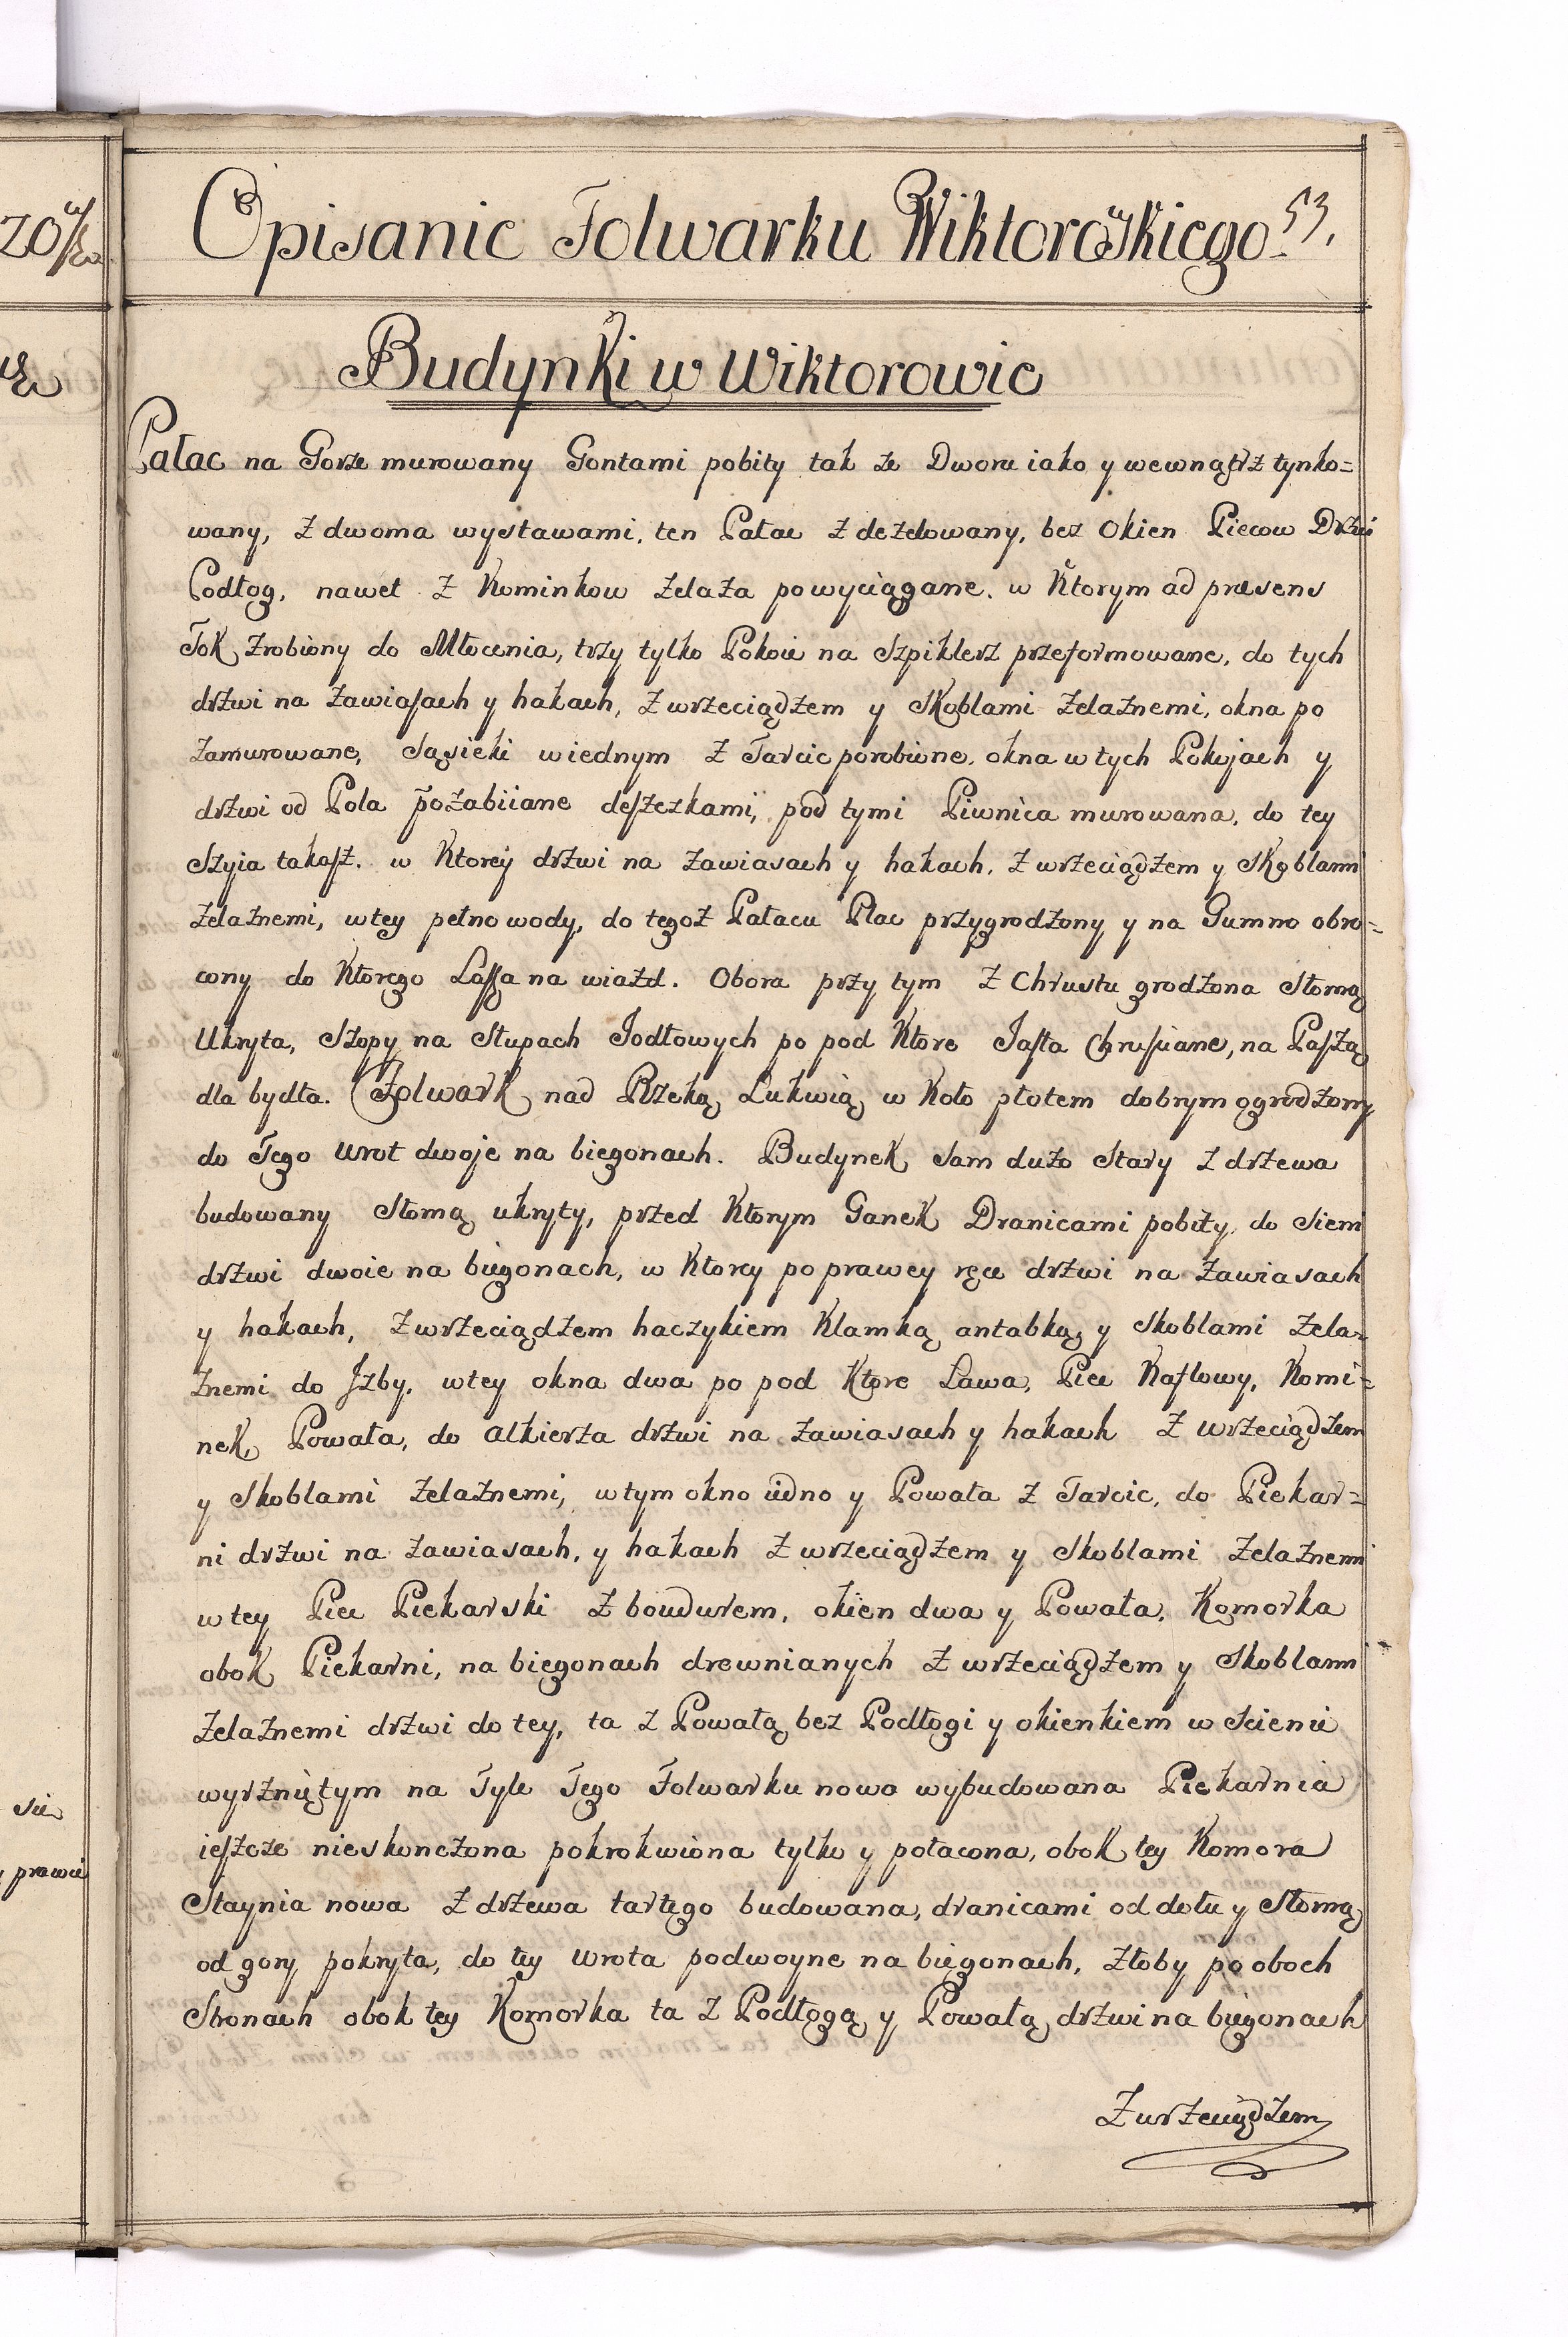 Opisanie Folwarku Wiktorowskiego 53.
Budynki w Wiktorowie
Pałac na Gorze murowany Gontami pobity tak ze Dworu iako y wewnątrz tynko=
wany, z dwoma wystawami, ten Pałac zdezelowany, bez Okien Piecow Drzwi
Podłog, nawet z Kominkow żelaza powyciągane. w Ktorym ad præsens
Tok zrobiony do Młocenia, trzy tylko Pokoie na Szpiklerz przeformowane, do tych
drzwi na zawiasach y hakach, z wrzeciądzem y Skoblami żelaznemi, okna po
zamurowane, Sąsieki w iednym z Tarcic porobione, okna w tych Pokojach y
drzwi od Pola pozabiiane deszczkami, pod tymi Piwnica murowana, do tey
Szyia takasz. w Ktorey drzwi na zawiasach y hakach, z wrzeciądzem y Skoblami
żelaznemi, w tey pełno wody, do tegoż Pałacu Plac przygrodzony y na Gumno obro=
cony do Ktorego Lassa na wiazd. Obora przy tym z Chrustu grodzona Słomą
Ukryta, Szopy na Słupach Jodłowych po pod Ktore Jasła Chruściane, na Paszą
dla bydła. Folwark nad Rzeką Łukwią w Koło płotem dobrym ogrodzony
do Tego wrot dwoje na biegonach. Budynek sam dużo Stary z drzewa
budowany Słomą ukryty, przed Ktorym Ganek Dranicami pobity, do Sieni
drzwi dwoie na biegonach, w Ktorey po prawey ręce drzwi na zawiasach
y hakach, z wrzeciądzem haczykiem Klamką antabką y Skoblami żela=
znemi do Jzby, w tey okna dwa po pod Ktore Ława, Piec Kaflowy, Komi=
nek Powała, do alkierza drzwi na zawiasach y hakach z wrzeciądzem
y Skoblami żelaznemi, w tym okno iedno y Powała z Tarcic, do Piekar=
ni drzwi na zawiasach, y hakach z wrzeciądzem y Skoblami żelaznemi
w tey Piec Piekarski z boudurem, okien dwa y Powała, Komorka
obok Piekarni, na biegonach drewnianych z wrzeciądzem y Skoblami
żelaznemi drzwi do tey, ta z Powałą bez Podłogi y okienkiem w Scienie
wyrzniętym na Tyle Tego Folwarku nowo wybudowana Piekarnia
ieszcze nieskonczona pokrokwiona tylko y połacona, obok tey Komora
Staynia nowa z drzewa tartego budowana, dranicami od dołu y Słomą
od gory pokryta, do tey wrota podwoyne na biegonach, żłoby po oboch
Stronach obok tey Komorka ta z Podłogą y Powałą drzwi na biegonach
z wrzeciądzem
sie
prawie